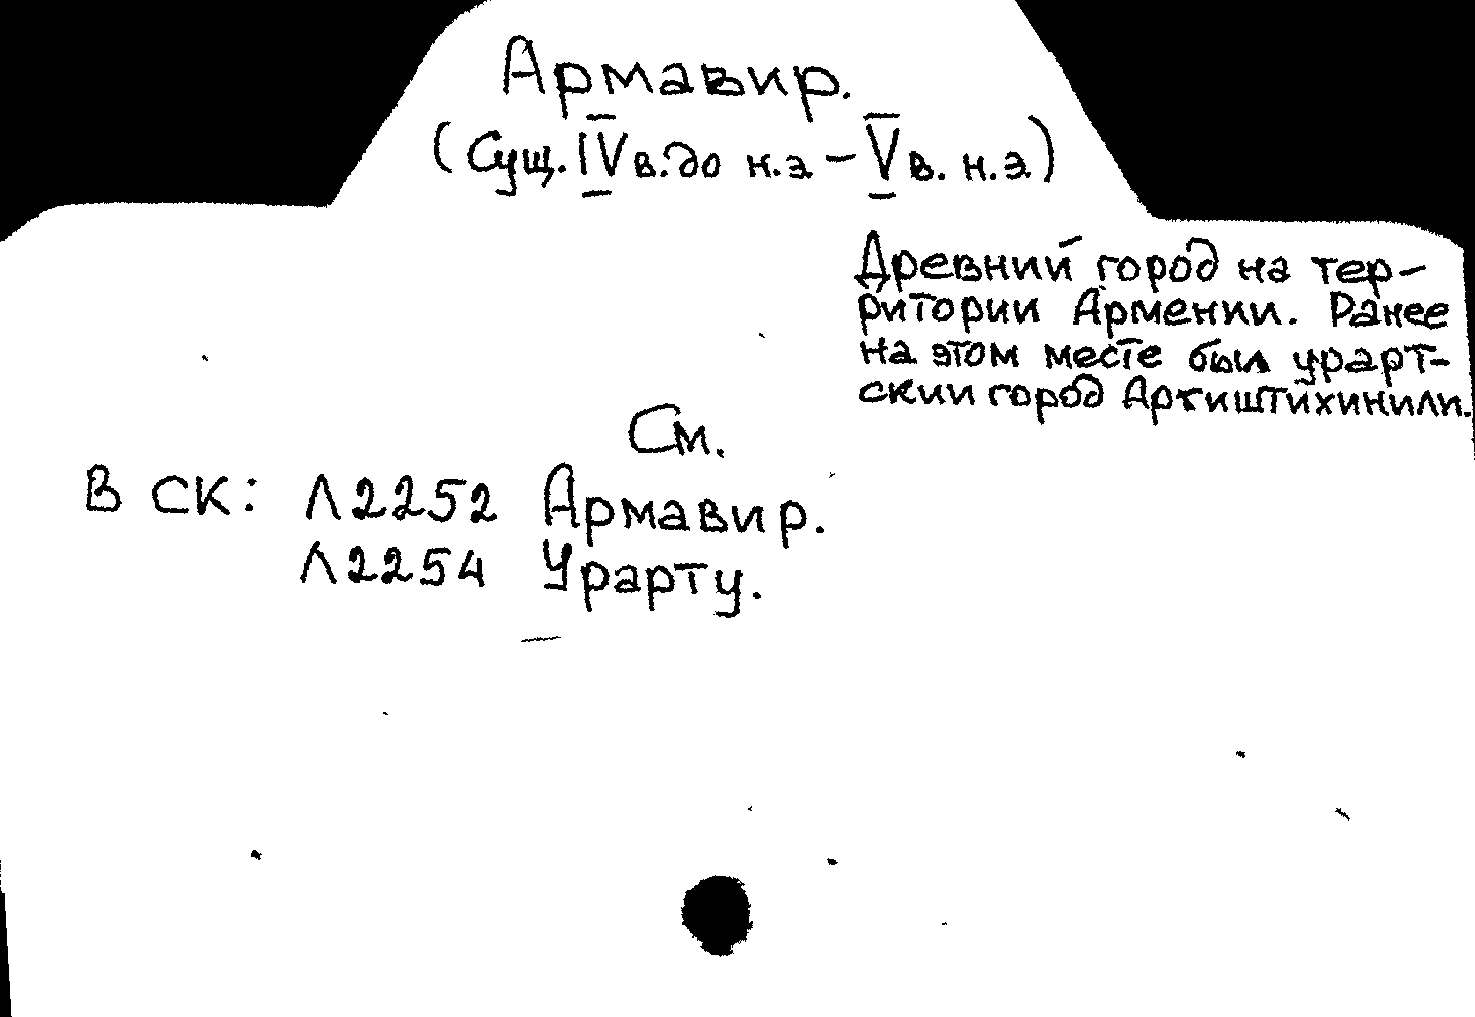 Армавир.
(Сущ. IV в. до н.э – V в. н.э)
Древний город на тер-
ритории Армении. Ранее
на этом месте был урарт-
ский город Аргиштихинили.
См.
В СК: Л2252 Армавир.
Л2254 Урарту.